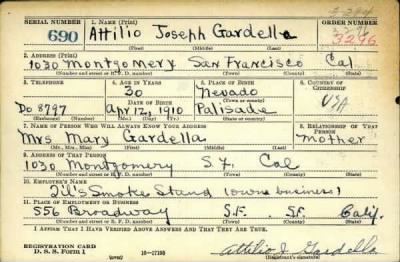 SERIAL NUMBER 1. NAME (Print) ORDER NUMBER
690 Attilio Joseph Gardella 3296
(First) (Middle) (Last)
2. ADDRESS (Print)
1030 Montgomery San Francisco Cal
(Number and street or R. F. D. number) (Town) (County) (State)
3. TELEPHONE 4. AGE IN YEARS 5. PLACE OF BIRTH 6. COUNTRY OF CITIZENSHIP
30 Nevada
DATE OF BIRTH (Town or county)
Do 8797 Apr 12, 1910 Palisade USA
(Exchange) (Number) (Mo.) (Day) (Yr.) (State or country)
7. NAME OF PERSON WHO WILL ALWAYS KNOW YOUR ADDRESS 8. RELATIONSHIP OF THAT PERSON
Mrs Mary Gardella mother
(Mr., Mrs., Miss) (First) (Middle) (Last)
9. ADDRESS OF THAT PERSON
1030 Montgomery S.F. Cal
(Number and street or R. F. D. number) (Town) (County) (State)
10. EMPLOYER'S NAME
Smoke Stand (owns business)
11. PLACE OF EMPLOYMENT OR BUSINESS
556 Broadway S.F. S.F. Calif.
(Number and street or R. F. D. number) (Town) (County) (State)
I AFFIRM THAT I HAVE VERIFIED ABOVE ANSWERS AND THAT THEY ARE TRUE.
REGISTRATION CARD
D. S. S. Form 1 (over) 16-17105 Attilio J. Gardella
(Registrant's signature)